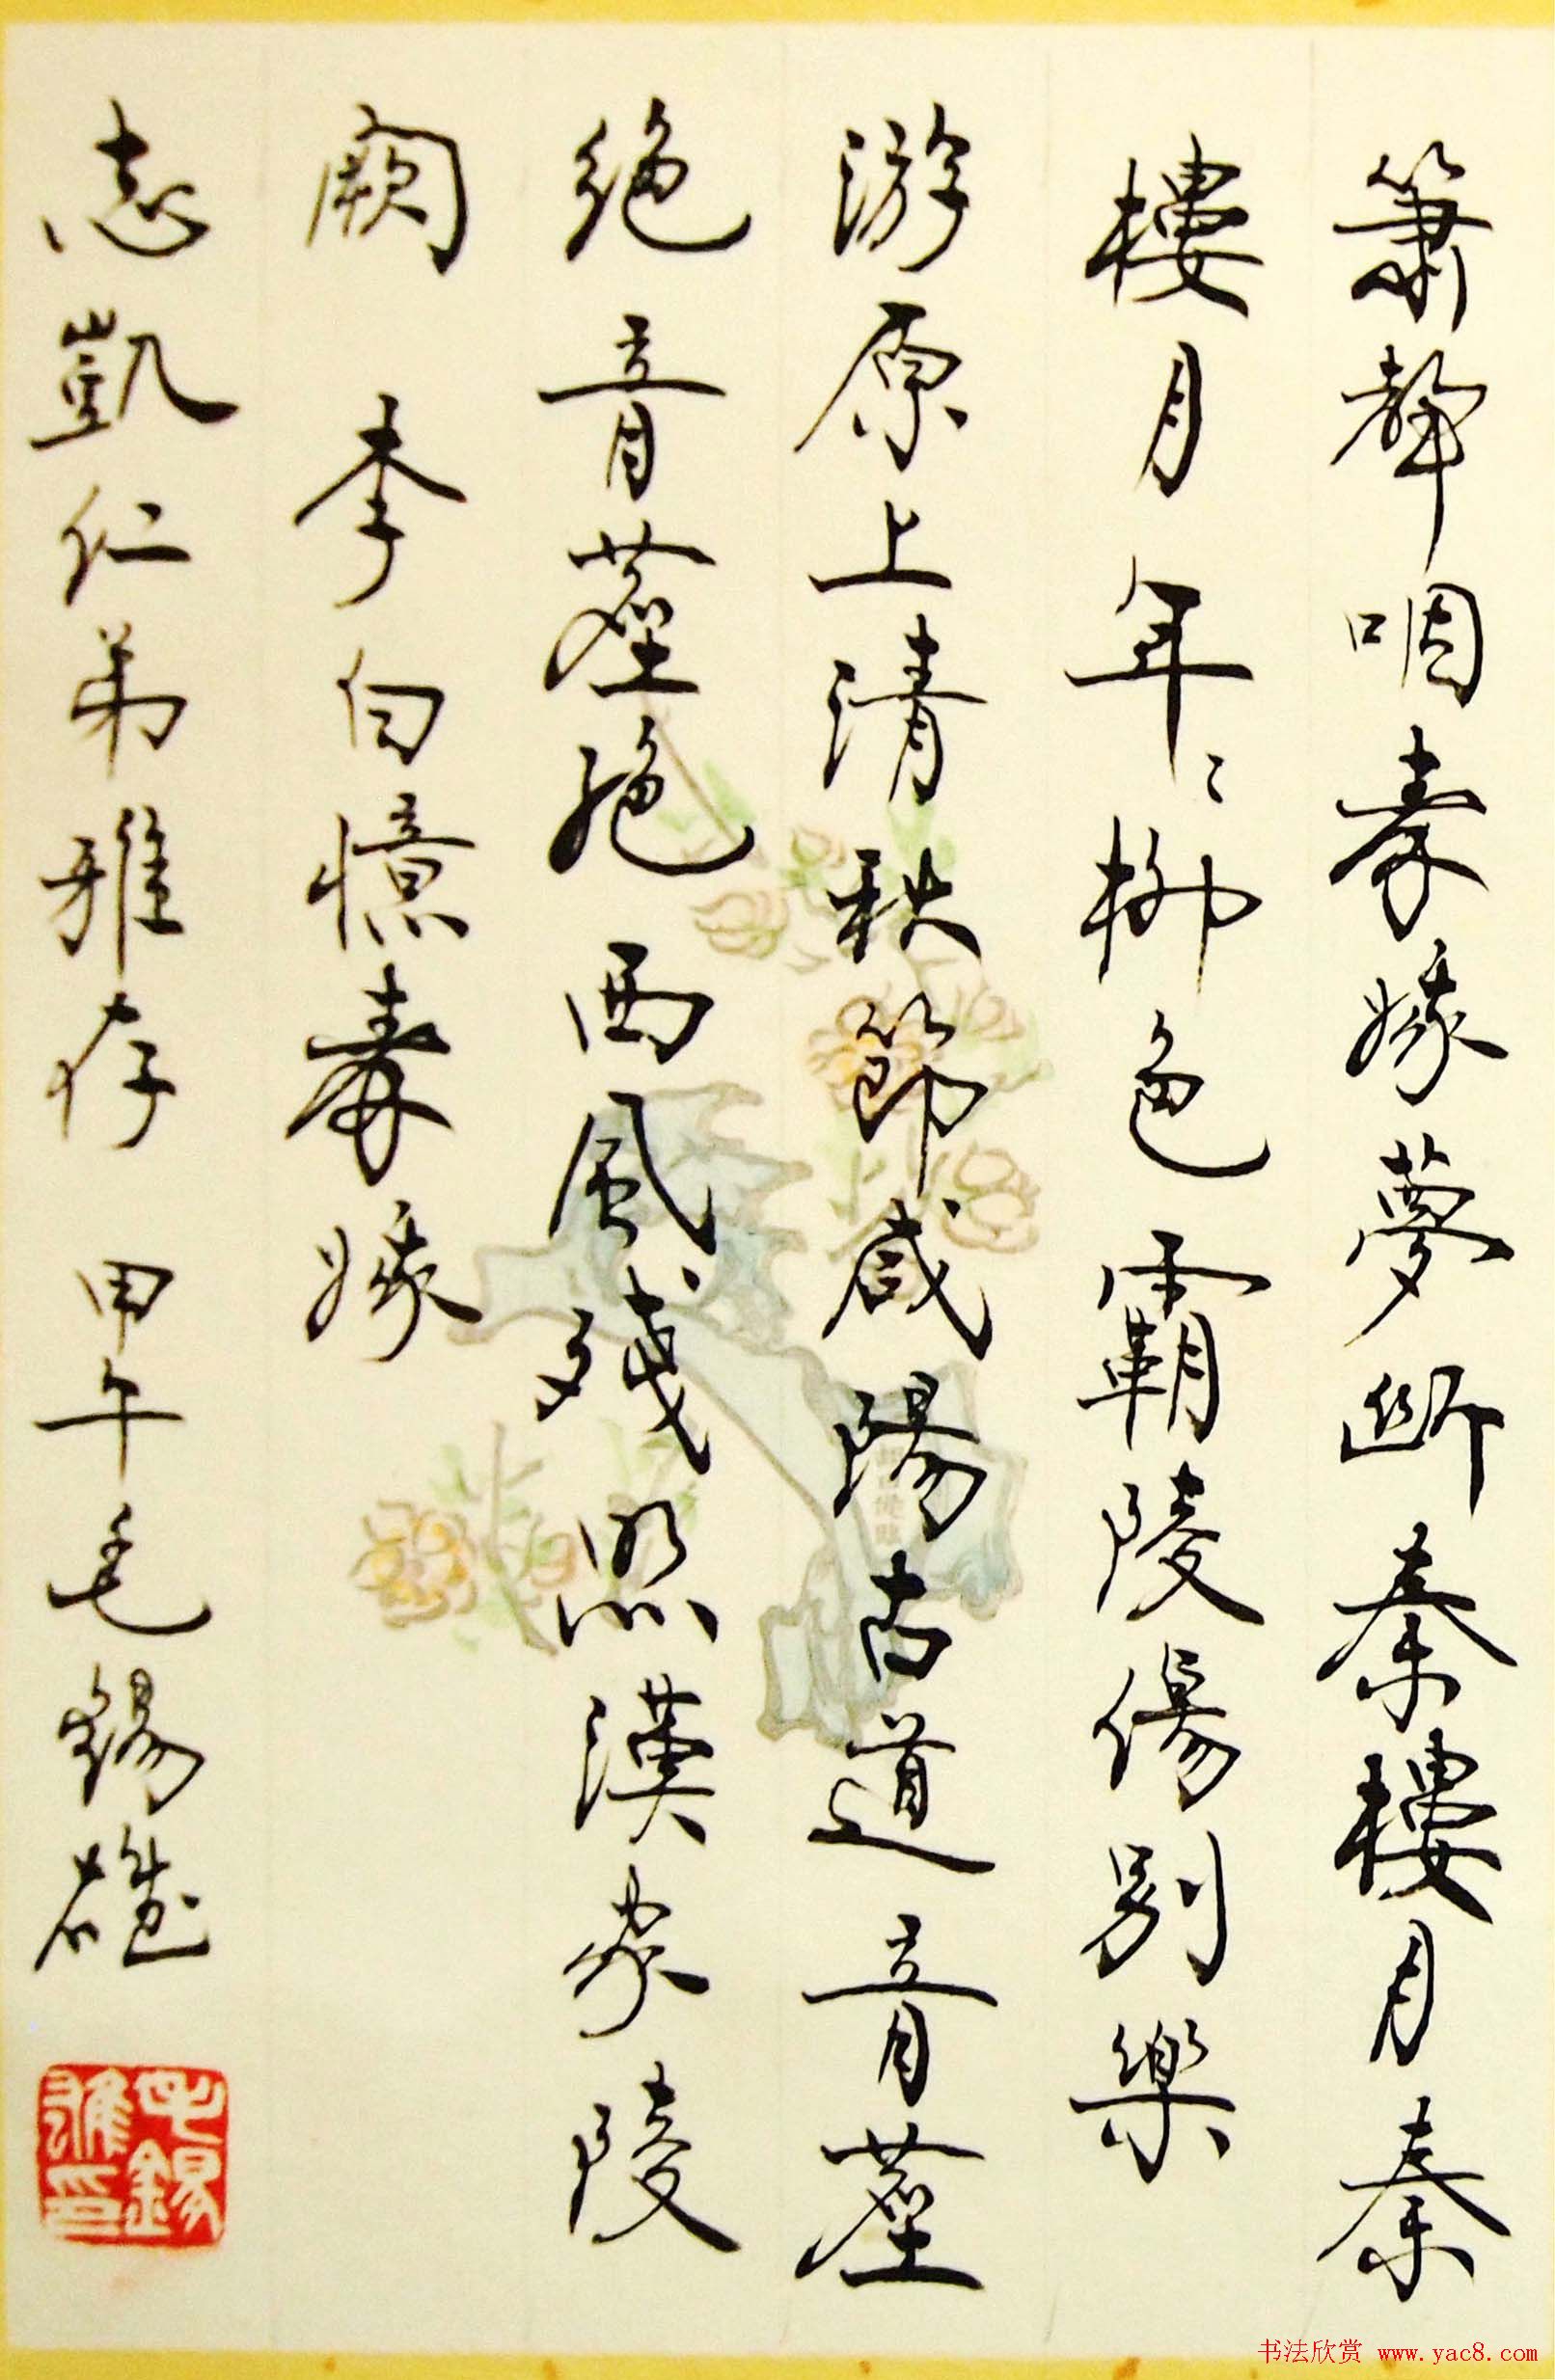 簫聲咽秦娥夢斷秦樓月秦
樓月年〻柳色霸陵傷別樂
游原上清秋節咸陽古道音塵
絕音塵絕西風殘照漢家陵
闕 李白憶秦娥
志凱仁弟雅存 甲午毛錫雄
毛錫雄印
书法欣赏 www.yac8.com